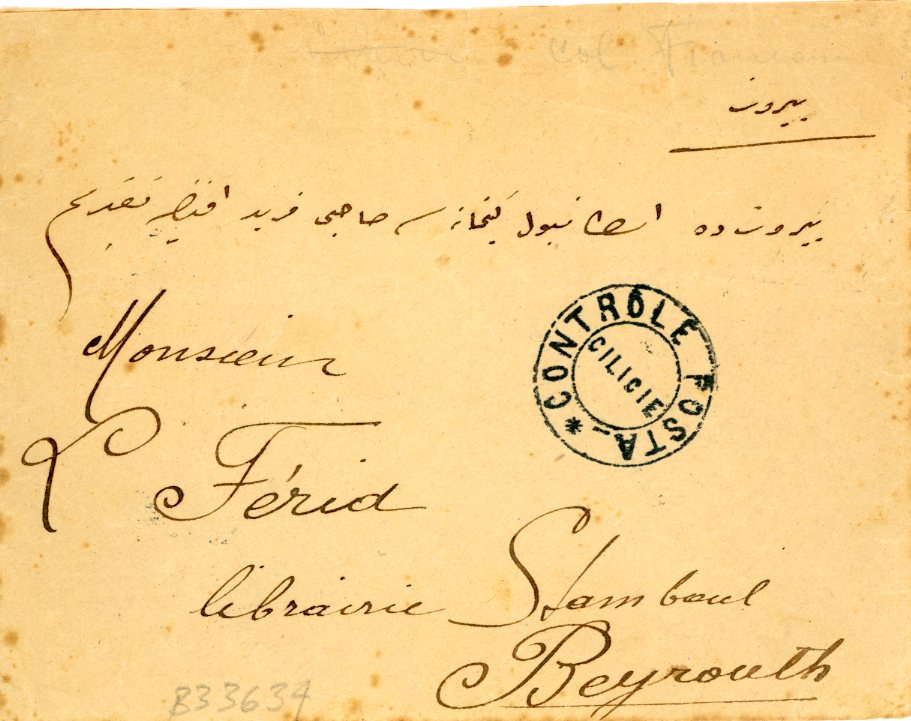 col. 
بيروت
بيروتده استانبول كتبخانه سى صاحبى فريد افنديه تقديم
CONTRÔLE POSTA_ *
CILICIE
Monsieur
Férid
librairie Stamboul
Beyrouth
B33634